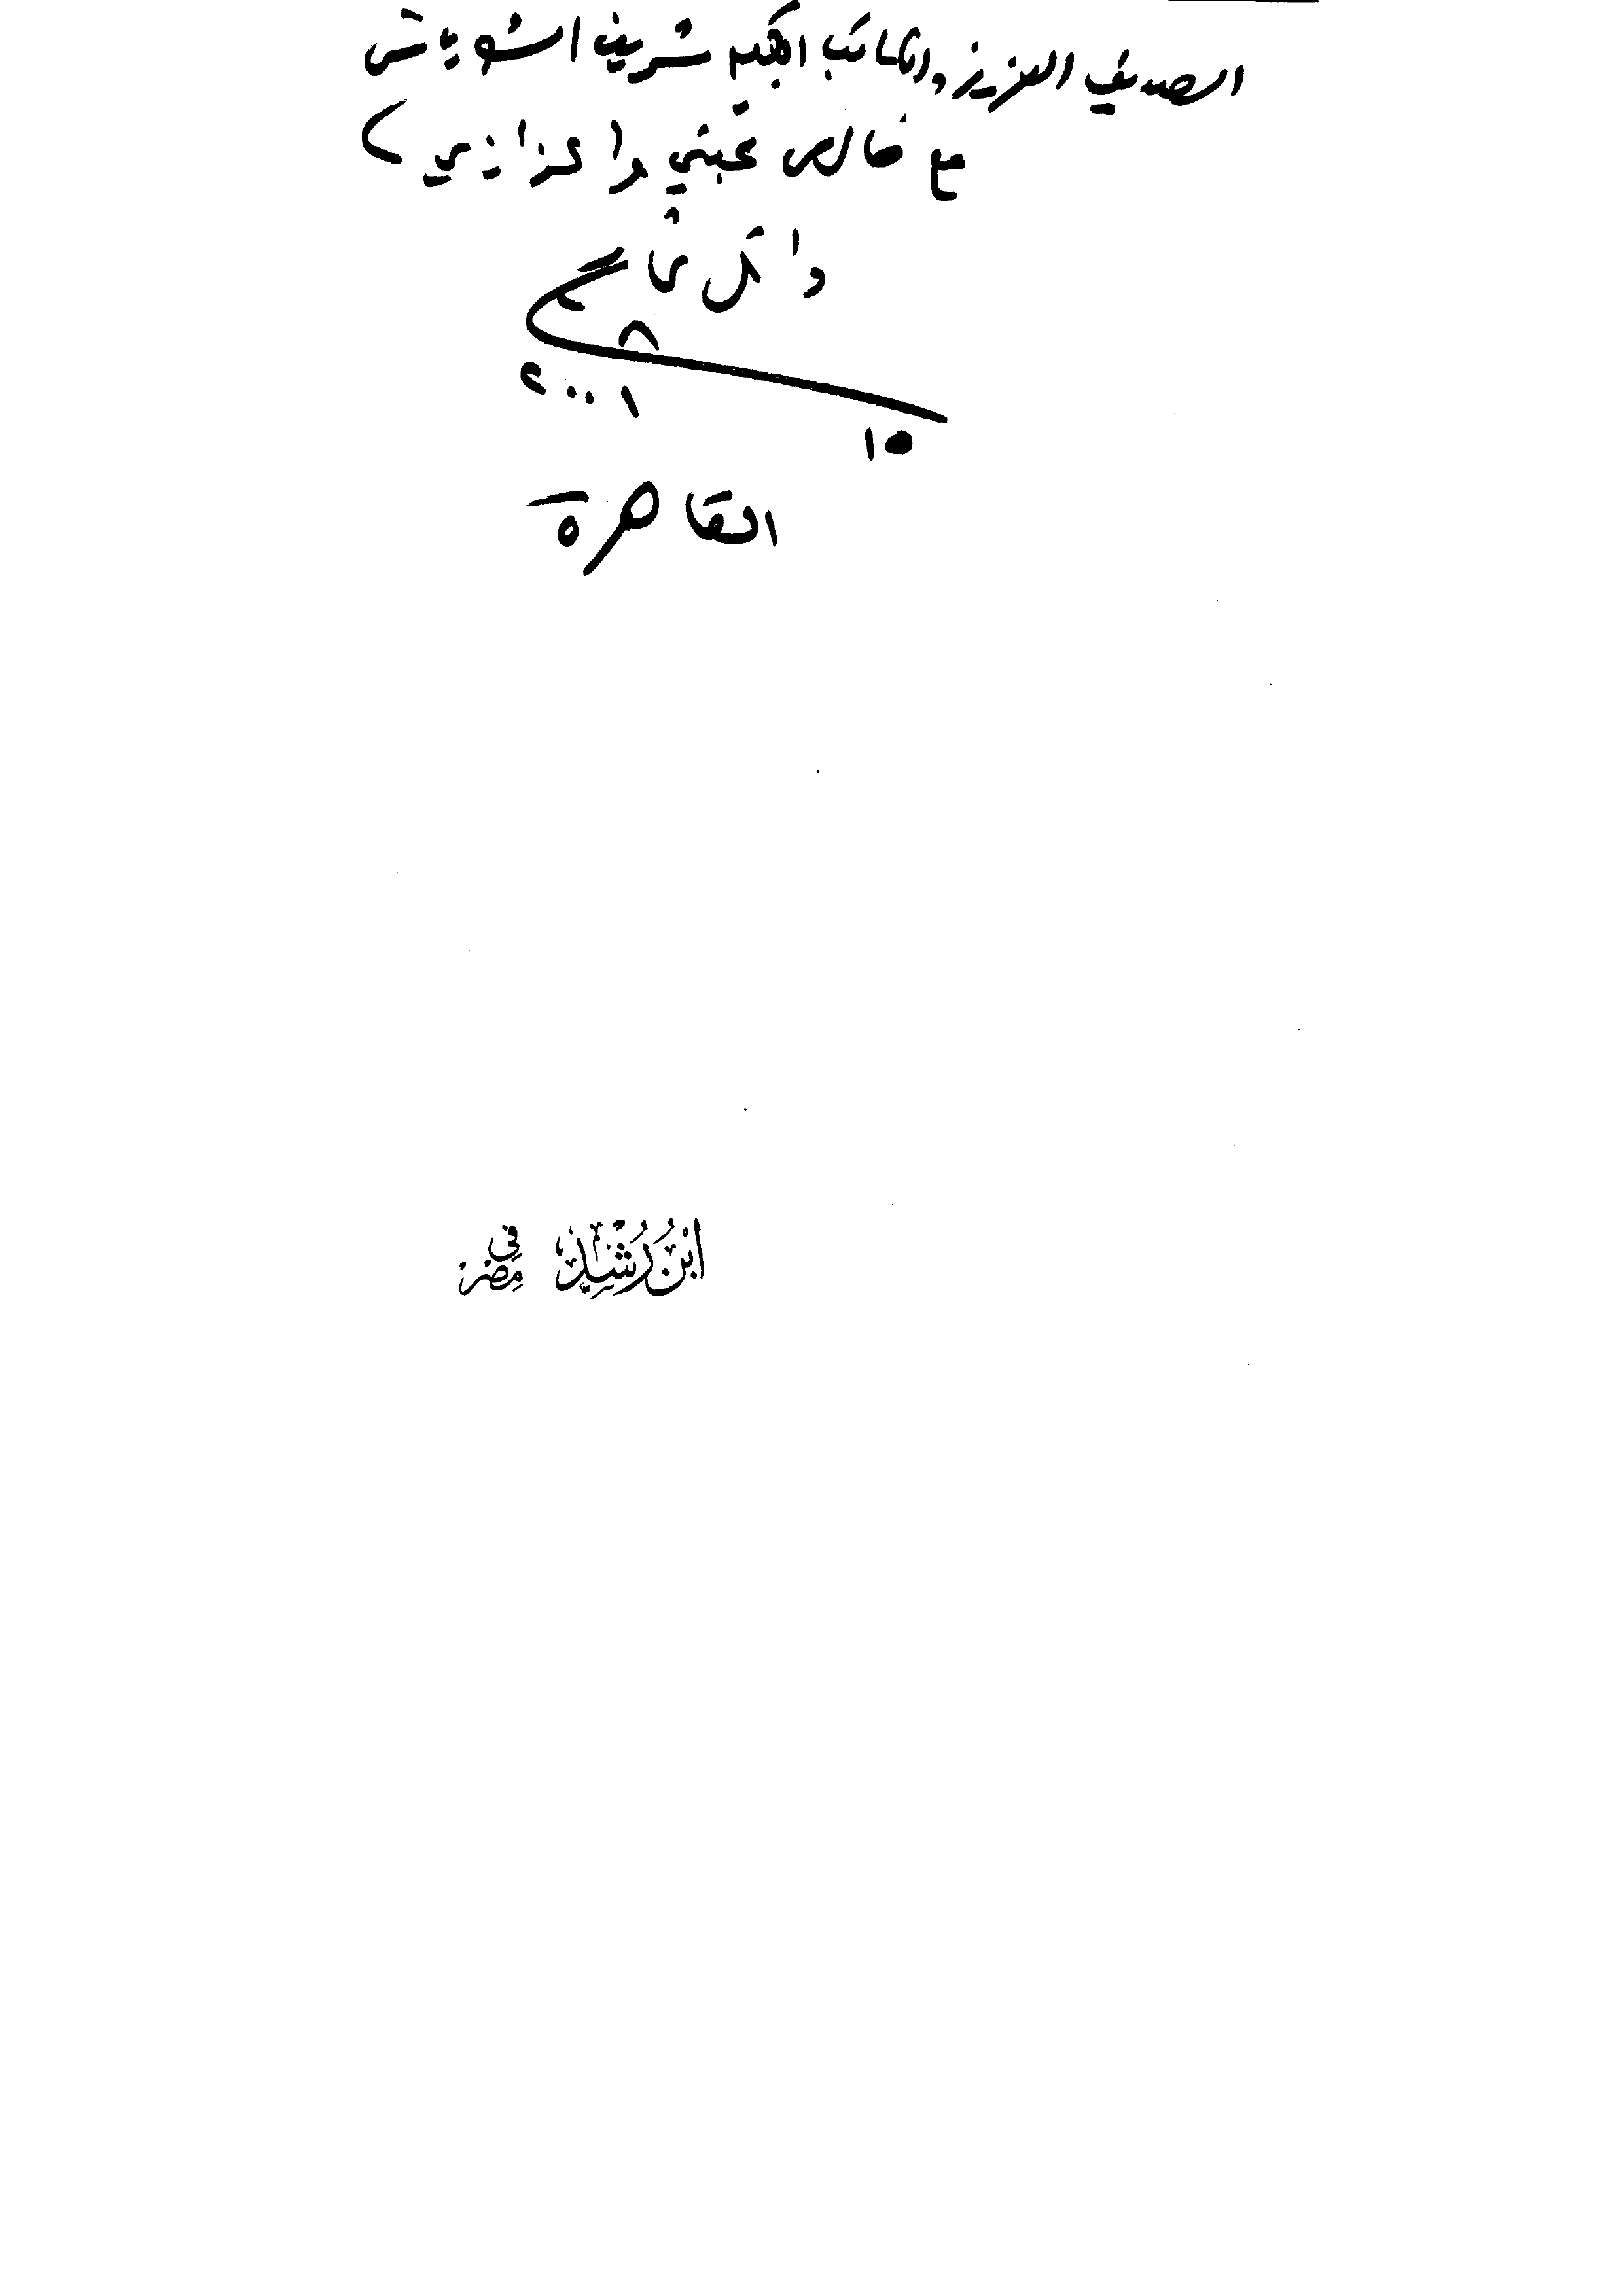 الصديق العزيز والكاتب الكبير شريف الشوباشي
مع خالص محبتي واعزازي
وائل غالي
٨
٢٠٠١
١٥
القاهرة
ابن رشد في مصر